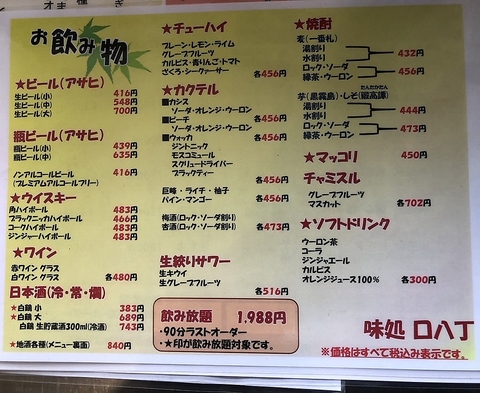 お飲み物
★ビール(アサヒ)
生ビール(小) 416円
生ビール(中) 548円
生ビール(大) 700円
瓶ビール(アサヒ)
瓶ビール(小) 439円
瓶ビール(中) 635円
ノンアルコールビール 416円
(プレミアムアルコールフリー)
★ウイスキー
角ハイボール 483円
ブラックニッカハイボール 466円
コークハイボール 483円
ジンジャーハイボール 483円
★ワイン
赤ワイン グラス
白ワイン グラス 各480円
日本酒(冷・常・燗)
★白鶴 小 383円
★白鶴 大 689円
白鶴 生貯蔵酒300ml(冷酒) 743円
★地酒各種(メニュー裏面) 840円
★チューハイ
プレーン・レモン・ライム
グレープフルーツ
カルピス・青りんご・トマト
ざくろ・シークァーサー 各456円
★カクテル
■カシス
ソーダ・オレンジ・ウーロン 各456円
■ピーチ 各456円
ソーダ・オレンジ・ウーロン
■ウォッカ 各456円
ジントニック
モスコミュール
スクリュードライバー
ブラックティー
各456円
巨峰・ライチ・柚子
パイン・マンゴー 各456円
梅酒(ロック・ソーダ割り)
杏酒(ロック・ソーダ割り) 各473円
生絞りサワー
生キウイ
生グレープフルーツ
各516円
飲み放題 1,988円
・90分ラストオーダー
・★印が飲み放題対象です。
★焼酎
麦(一番札)
湯割り
水割り 432円
ロック・ソーダ
緑茶・ウーロン 456円
たんたかたん
芋(黒霧島)・しそ(鍛高譚)
湯割り
水割り 444円
ロック・ソーダ
緑茶・ウーロン 473円
★マッコリ 450円
チャミスル
グレープフルーツ
マスカット 各702円
★ソフトドリンク
ウーロン茶
コーラ
ジンジャエール
カルピス
オレンジジュース100% 各300円
味処 口八丁
※価格はすべて税込み表示です。